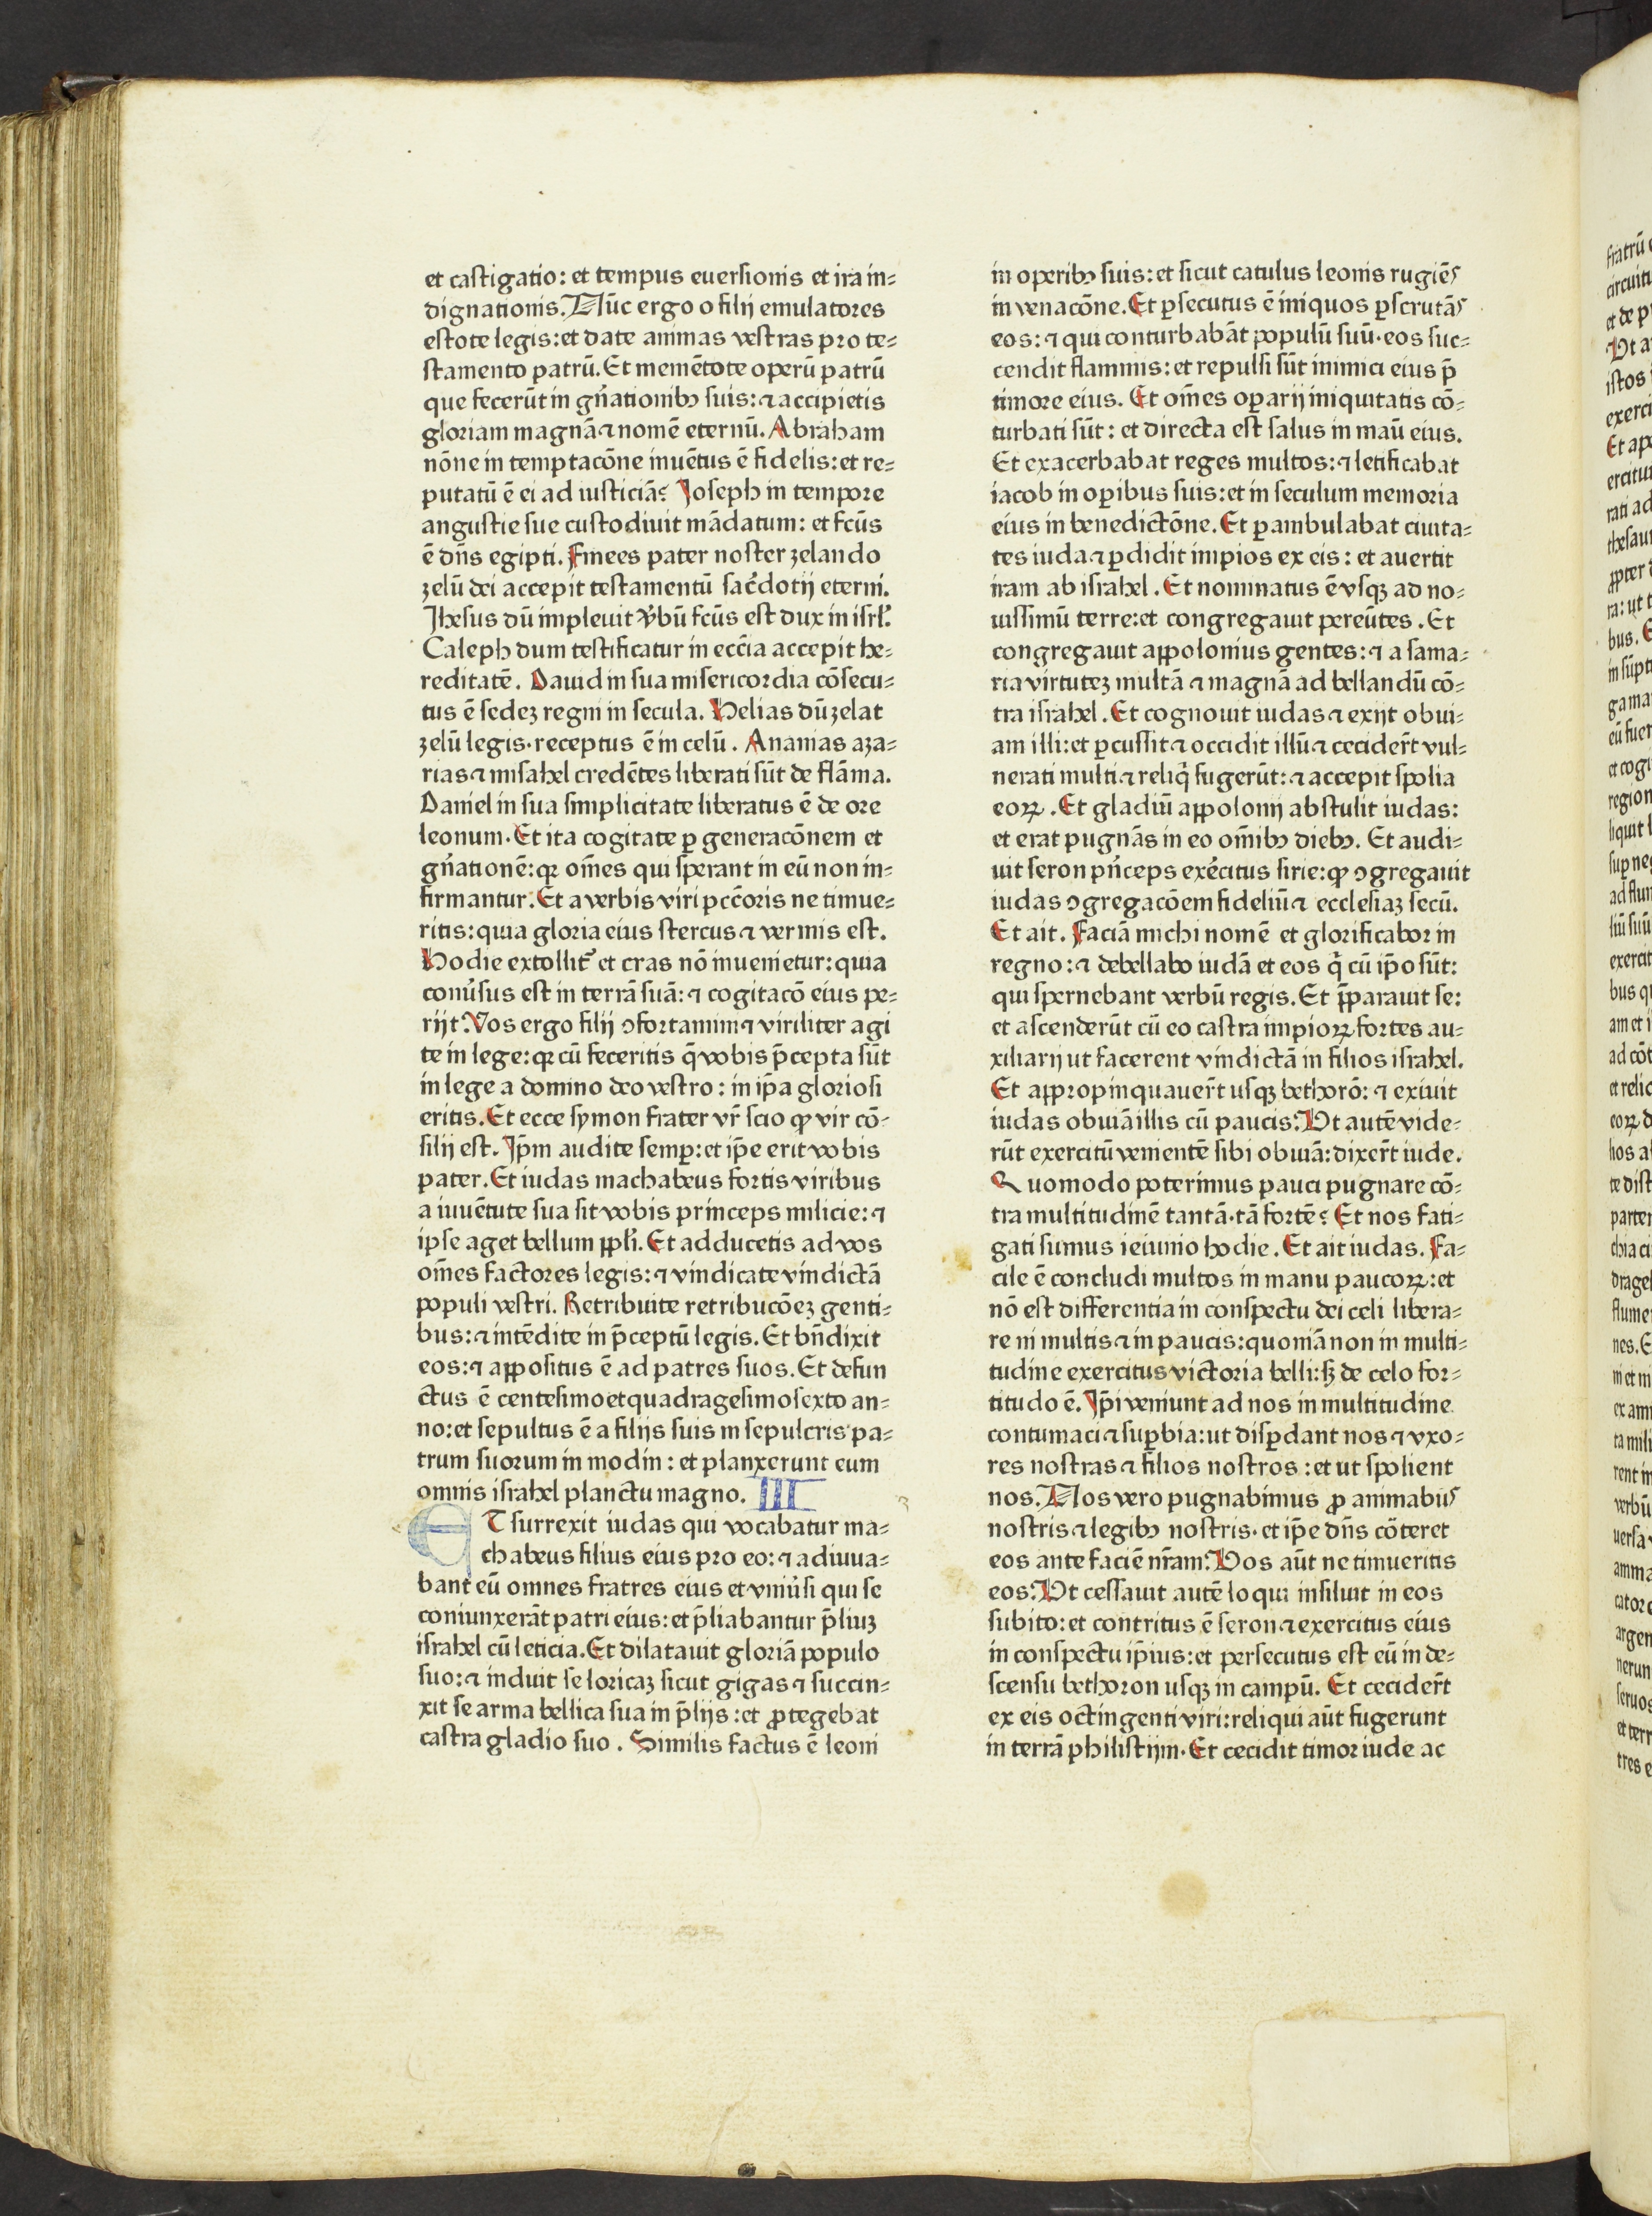 et castigatio: et tempus euersionis et ira in⸗
dignationis. Nūc ergo o filij emulatores
estote legis: et date animas vestras pro te⸗
stamento patrū. Et memētote operū patrū
que fecerūt in gn̄ationibꝫ suis: ⁊ accipietis
gloriam magnā ⁊ nomē eternū. Abraham
nōne in temptacōne inuētus ē fidelis: et re⸗
putatū ē ei ad iusticiā? Joseph in tempore
angustie sue custodiuit mādatum: et fcūs
ē dn̄s egipti. Finees pater noster zelando
zelū dei accepit testamentū sac̄dotij eterni.
Jhesus dū impleuit v̄bū fcūs est dux in isrl̄.
Caleph dum testificatur in ecc̄ia accepit he⸗
reditatē. Dauid in sua misericordia cōsecu⸗
tus ē sedeꝫ regni in secula. Helias dū zelat
zelū legis· receptus ē in celū. Ananias aza⸗
rias ⁊ misahel credētes liberati sūt de flāma.
Daniel in sua simplicitate liberatus ē de ore
leonum. Et ita cogitate ꝑ generacōnem et
gn̄ationē: qꝛ om̄es qui sperant in eū non in⸗
firmantur. Et a verbis viri pcc̄oris ne timue⸗
ritis: quia gloria eius stercus ⁊ vermis est.
Hodie extollit᷑ et cras nō inuenietur: quia
conūsus est in terrā suā: ⁊ cogitacō eius pe⸗
rijt. Vos ergo filij ꝯfortamini ⁊ viriliter agi
te in lege: qꝛ cū feceritis q̄ vobis p̄cepta sūt
in lege a domino deo vestro: in ip̄a gloriosi
eritis. Et ecce symon frater vr̄ scio ꝙ vir cō⸗
silij est. Ip̄m audite semꝑ: et ip̄e erit vobis
pater. Et iudas machabeus fortis viribus
a iuuētute sua sit vobis princeps milicie: ⁊
ipse aget bellum ppl̄i. Et adducetis ad vos
om̄es factores legis: ⁊ vindicate vindictā
populi vestri. Retribuite retribucōeꝫ genti⸗
bus: ⁊ intēdite in p̄ceptū legis. Et bn̄dixit
eos: ⁊ appositus ē ad patres suos. Et defun
ctus ē centesimoetquadragesimosexto an⸗
no: et sepultus ē a filijs suis in sepulcris pa⸗
trum suorum in modin: et planxerunt eum
omnis israhel planctu magno. III
ET surrexit iudas qui vocabatur ma⸗
chabeus filius eius pro eo: ⁊ adiuua⸗
bant eū omnes fratres eius et vniūsi qui se
coniunxerāt patri eius: et p̄liabantur p̄liuꝫ
israhel cū leticia. Et dilatauit gloriā populo
suo: ⁊ induit se loricaꝫ sicut gigas ⁊ succin⸗
xit se arma bellica sua in p̄lijs: et ꝓtegebat
castra gladio suo. Similis factus ē leoni
in operibꝫ suis: et sicut catulus leonis rugiēs
in venacōne. Et ꝑsecutus ē iniquos ꝑscrutās
eos: ⁊ qui conturbabāt populū suū· eos suc⸗
cendit flammis: et repulsi sūt inimici eius p̄
timore eius. Et om̄es oꝑarij iniquitatis cō⸗
turbati sūt: et directa est salus in maū eius.
Et exacerbabat reges multos: ⁊ letificabat
iacob in oꝑibus suis: et in seculum memoria
eius in benedictōne. Et ꝑambulabat ciuita⸗
tes iuda ⁊ ꝑdidit impios ex eis: et auertit
iram ab israhel. Et nominatus ē vsqꝫ ad no⸗
uissimū terre: et congregauit pereūtes. Et
congregauit appolonius gentes: ⁊ a sama⸗
ria virtuteꝫ multā ⁊ magnā ad bellandū cō⸗
tra israhel. Et cognouit iudas ⁊ exijt obui⸗
am illi: et ꝑcussit ⁊ occidit illū ⁊ cecider̄t vul⸗
nerati multi ⁊ reliq̄ fugerūt: ⁊ accepit spolia
eoꝝ. Et gladiū appolonij abstulit iudas:
et erat pugnās in eo om̄ibꝫ diebꝫ. Et audi⸗
uit seron pn̄ceps exēcitus sirie: ꝙ ꝯgregauit
iudas ꝯgregacōem fideliū ⁊ ecclesiaꝫ secū.
Et ait. Faciā michi nomē et glorificabor in
regno: ⁊ debellabo iudā et eos q̄ cū ip̄o sūt:
qui spernebant verbū regis. Et p̄parauit se:
et ascenderūt cū eo castra impioꝝ fortes au⸗
xiliarij ut facerent vindictā in filios israhel.
Et appropinquauer̄t usqꝫ bethorō: ⁊ exiuit
iudas obuiā illis cū paucis. Vt autē vide⸗
rūt exercitū venientē sibi obuiā: dixer̄t iude.
Quomodo poterimus pauci pugnare cō⸗
tra multitudinē tantā· tā fortē? Et nos fati⸗
gati sumus ieiunio hodie. Et ait iudas. Fa⸗
cile ē concludi multos in manu paucoꝝ: et
nō est differentia in conspectu dei celi libera⸗
re ni multis ⁊ in paucis: quoniā non in multi⸗
tudine exercitus victoria belli: sꝫ de celo for⸗
titudo ē. Ip̄i veniunt ad nos in multitudine
contumaci ⁊ suꝑbia: ut disꝑdant nos ⁊ vxo⸗
res nostras ⁊ filios nostros: et ut spolient
nos. Nos vero pugnabimus ꝓ animabus
nostris ⁊ legibꝫ nostris· et ip̄e dn̄s cōteret
eos ante faciē nr̄am. Vos aūt ne timueritis
eos. Vt cessauit autē loqui insiluit in eos
subito: et contritus ē seron ⁊ exercitus eius
in conspectu ip̄ius: et persecutus est eū in de⸗
scensu bethoron usqꝫ in campū. Et cecider̄t
ex eis octingenti viri: reliqui aūt fugerunt
in terrā philistijm. Et cecidit timor iude ac